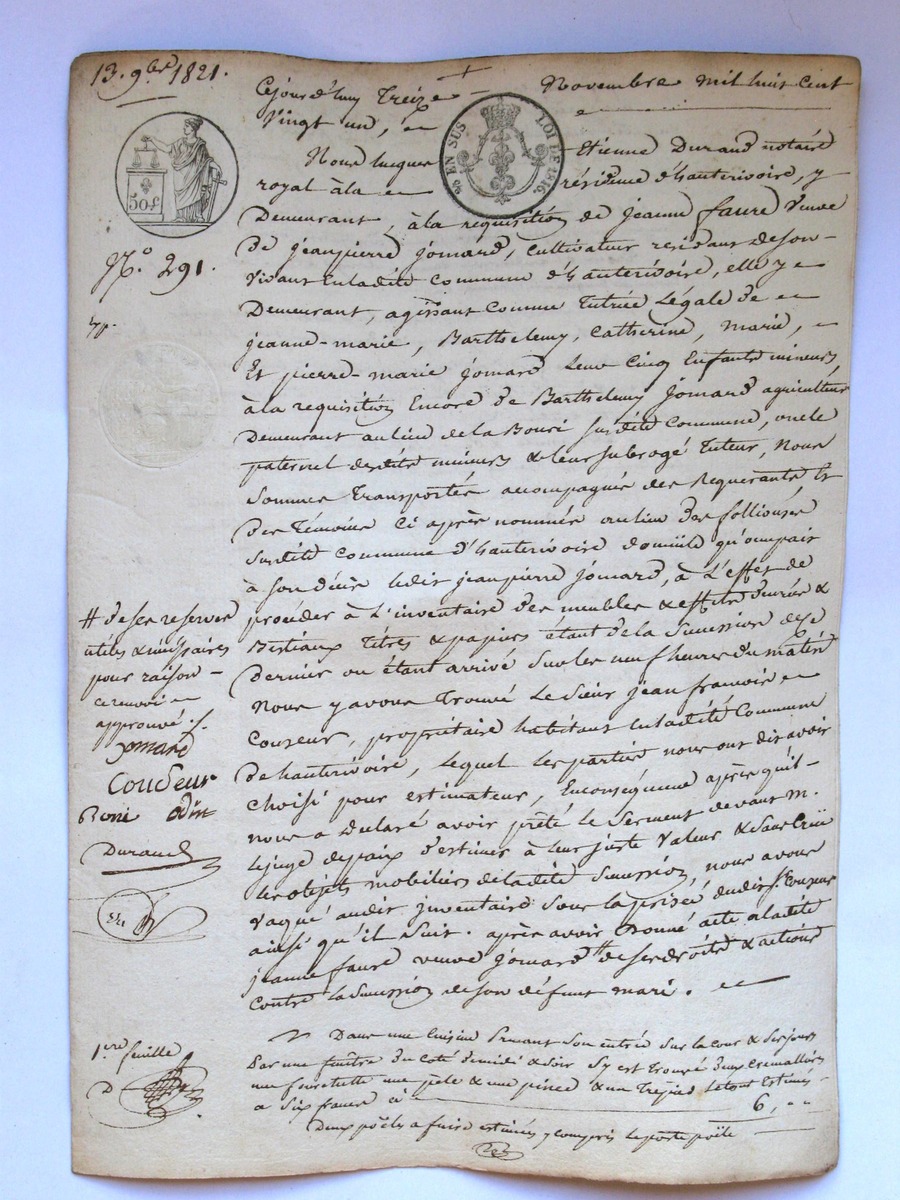 13. 9bre 1821.
Cejourd'huy Treize Novembre mil huit Cent
Vingt un,
50 EN SUS LOI DE 1816.
50 c
Nous Etienne Durand notaire
royal à la résidence d'hauterivoire, y
Demeurant, à la requisition de jeanne faure Veuve
N.º 291.
de jeanpierre jomard, Cultivateur residant de son
vivant En ladite Commune d'hauterivoire, elle y
Demeurant, agissant Comme Tutrice Légale de
jeanne-marie, Barthelemy, Catherine, marie,
Et pierre-marie jomard leur Cinq Enfants mineurs,
à la requisition Encore de Barthelemy jomard agriculteur
Demeurant au lieu de la Bouri susdite Commune, oncle
paternel desdits mineurs & leur subrogé Tuteur, Nous
Sommes Transportés accompagnés des Requerants Et
des Témoins Ci après nommés au lieu des folliouses
susdite Commune d'hauterivoire domicile qu'occupait
à son décès ledit jeanpierre jomard, à L'effet de
proceder à L'inventaire des meubles & effets denrées &
Bestiaux Titres & papiers étant de la Succession de ce
Dernier ou étant arrivé sur les neuf heures du matin
Nous y avons Trouvé Le Sieur jean francois
Couzeur, propriétaire habitant En ladite Commune
de hauterivoire, lequel les parties nous ont dit avoir
choisi pour estimateur, En conséquence après qu'il
nous a Déclaré avoir prêté Le Serment devant m.
Le juge de paix d'estimer à leur juste Valeur & Sans Crue
les objets mobiliers de ladite Succession, nous avons
Vaqué audit inventaire sous la prisée dudit S. Couzeur
ainsi qu'il Suit. après avoir Donné acte à ladite
jeanne faure veuve jomard # de ses droits & actions
Contre la Succession de son défunt mari.
# de ses reserves
utiles & nécessaires
pour raison
ce renvoi
approuvé
jomard
Coudeur
Durand
1ere feuille
D
Dans une Cuisine Prenant son entrée sur la cour & ses jours
Par une fenêtre du Coté de midi & soir s'y est trouvé deux Cremalliers
une pele & une pince & un Trepied le tout Estimés
a Six francs 6,
Deux poëles a frire estimés y compris le porte poële